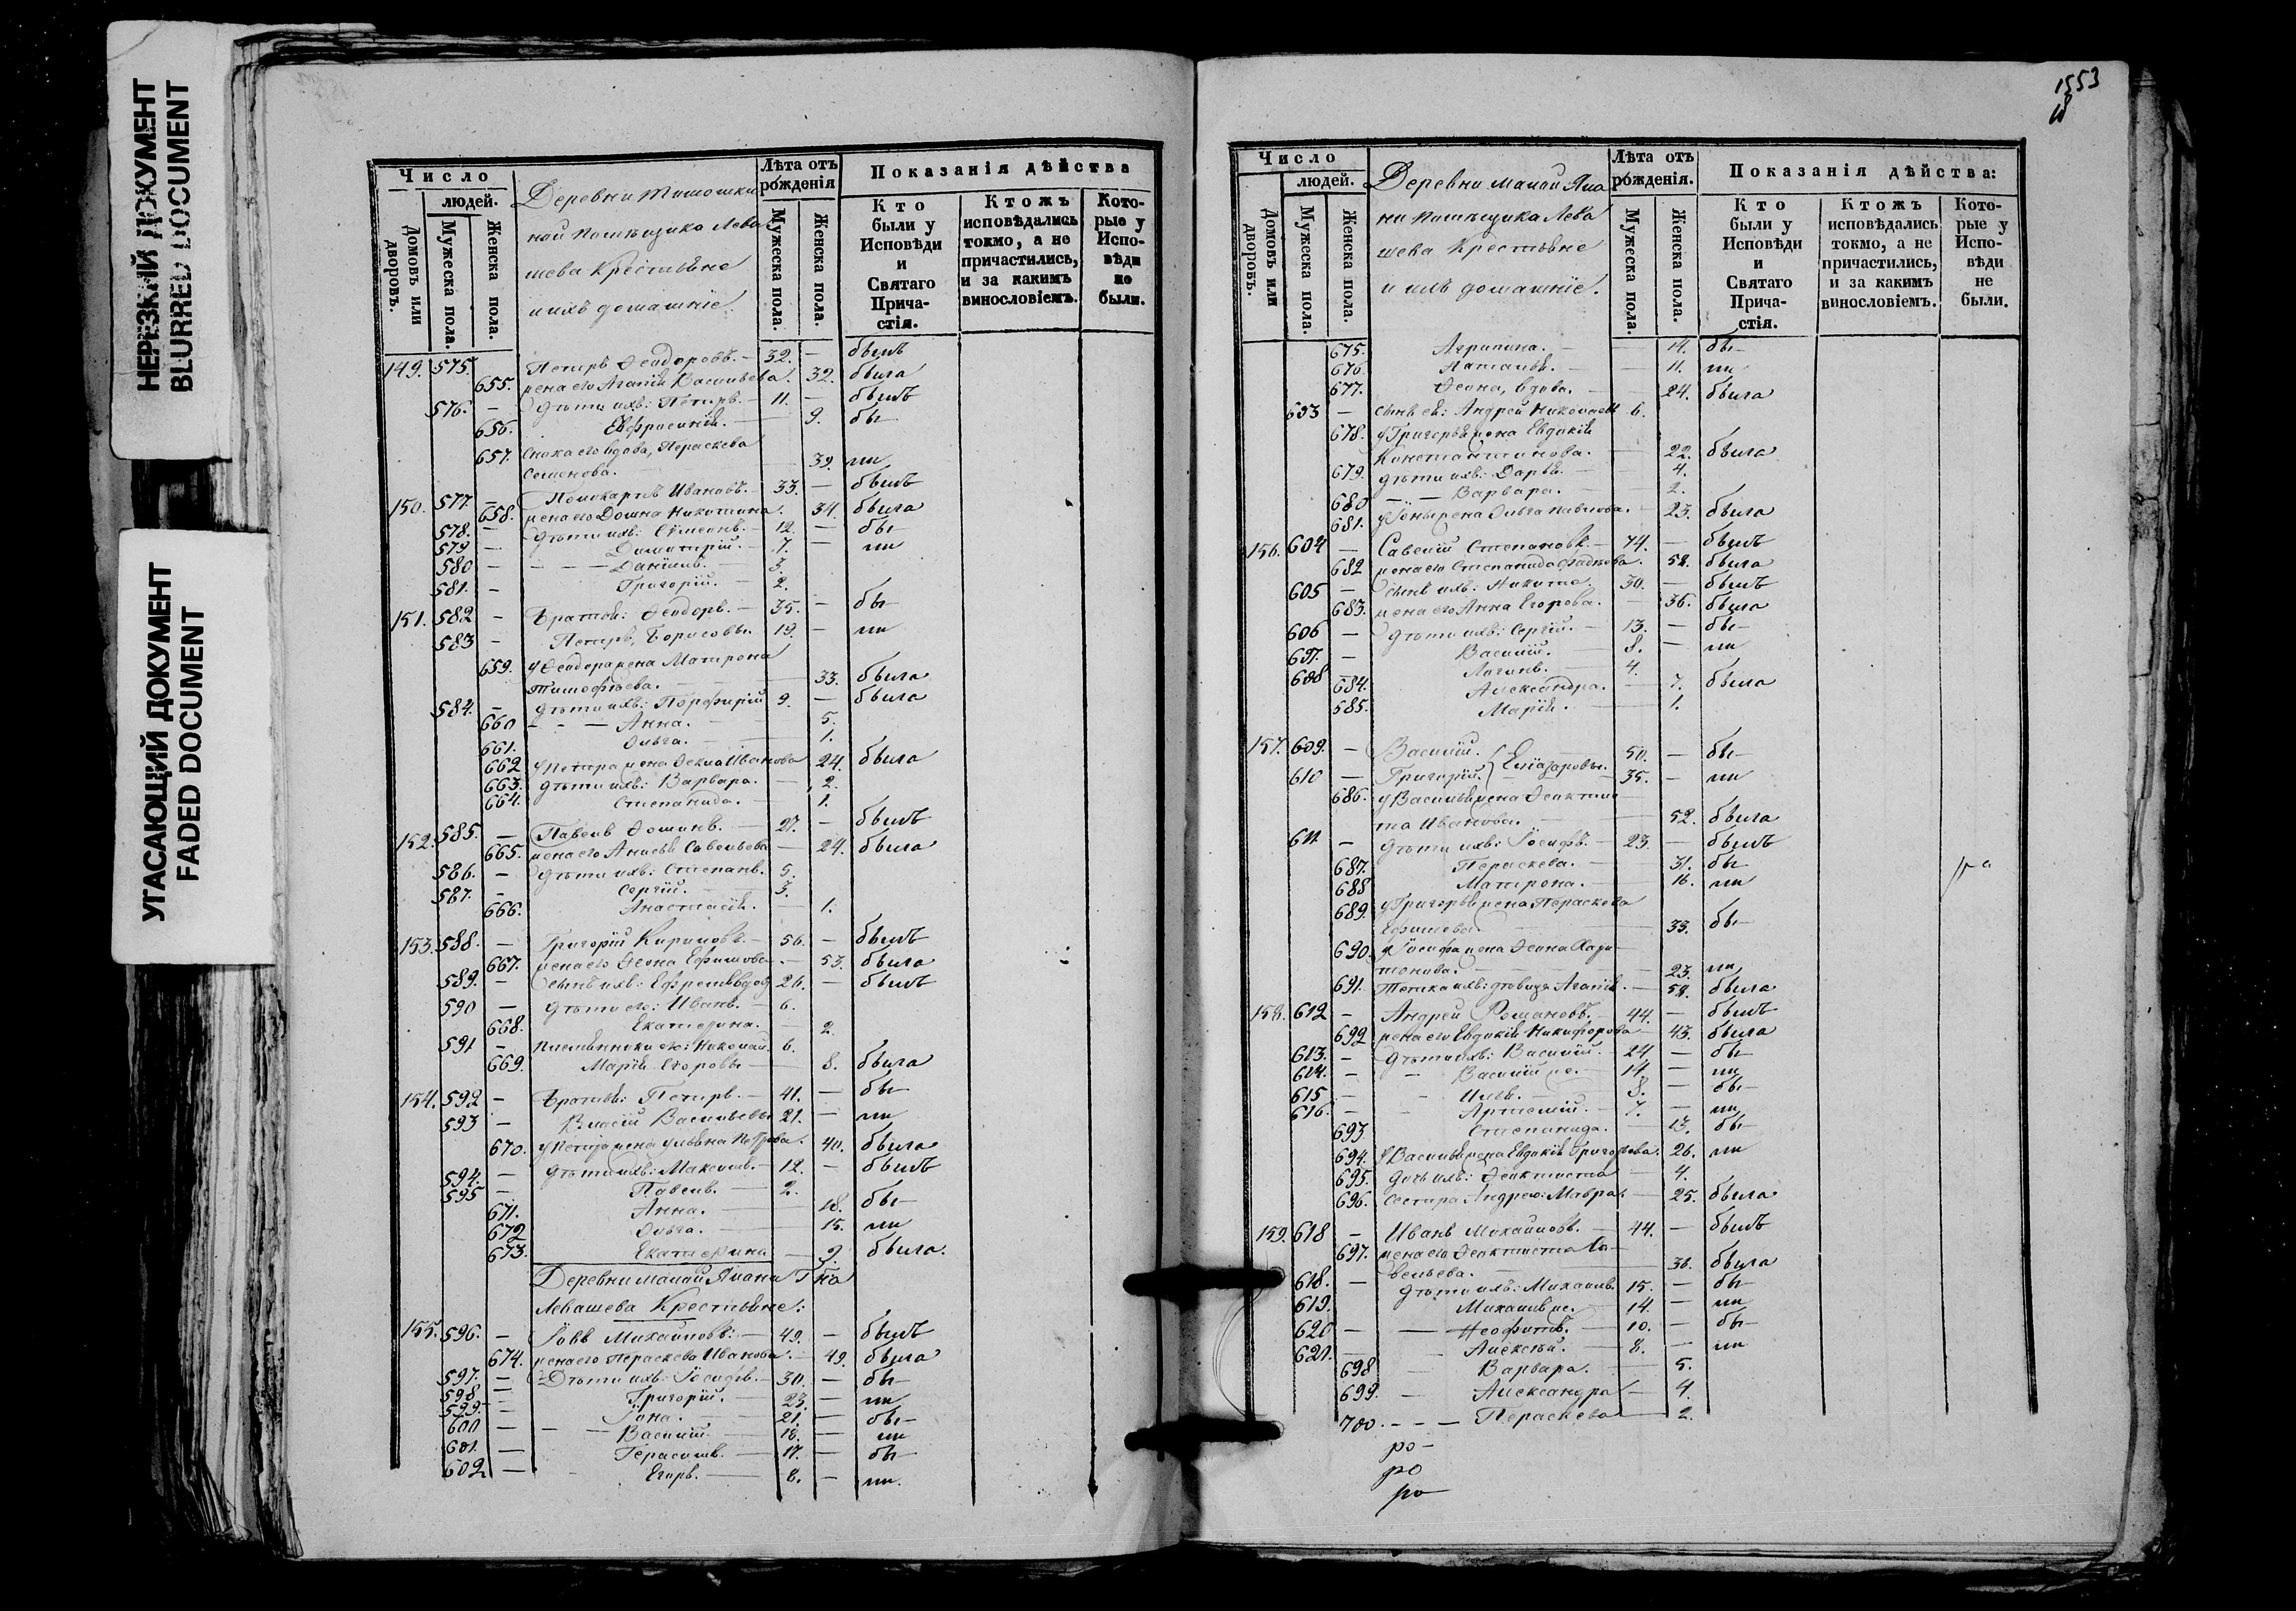 НЕРЕЗКИЙ ДОКУМЕНТ
BLURRED DOCUMENT
УГАСАЮЩИЙ ДОКУМЕНТ
FADED DOCUMENT
Число
людей.
Домовъ или дворовъ.
Мужеска пола.
Женска пола.
Деревни
ной Помѣщика Лева
шева Крестьяне
и ихъ домашніе.
Лѣта отъ рожденія
Мужеска пола.
Женска пола.
Показанія дѣйства
Кто были у Исповѣди и Святаго Причастія.
Ктожъ исповѣдались токмо, а не причастились, и за какимъ винословіемъ.
Которые у Исповѣди не были.
149. 575. Петръ Ѳеодоровъ. — 32. — былъ
655. жена его Агапія Васильева. 32. была
576. — Дѣти ихъ: Петръ. — 11. — былъ
656. Евфросинія. — 9. бы—
657. Сноха его вдова, Параскева
Семенова. — 39. ли
150. 577. — Поликарпъ Ивановъ. — 33. — былъ
658. жена его Домна Никитина. 34. была
578. — Дѣти ихъ: Сѵмеонъ. — 12. — бы—
579 — Димитрій. — 7. — ли
580 — Даніилъ. 3.
581. — Григорій. — 2.
151. 582 — Братья: Ѳеодоръ. — 35. — бы—
583 — Петръ, Борисовы. 19. — ли
659. у Ѳеодора жена Матрона
Тимофѣева. — 33. была
584. — Дѣти ихъ: Порфирій 9. — была
660 — Анна. — 5.
661. Ольга. — 1.
662 у Петра жена Ѳекла Иванова 24. была
663. Дѣти ихъ: Варвара. — 2.
664. Степанида. — 1.
152. 585. — Павелъ Ѳоминъ. — 27. — былъ
665. жена его Анисья Савельева — 24. была
586. — Дѣти ихъ: Степанъ. 5.
587. — Сергій. — 3.
666. Анастасія. — 1.
153. 588. — Григорій Кириловъ. — 56. — былъ
667. жена его Ѳекла Ефимова — 53. была
589. — Сынъ ихъ: Ефремъ вдов. 26. — былъ
590 — Дѣти его: Иванъ. — 6.
668. Екатерина. — 2.
591 — племянники его: Николай. 6.
669. Марія Егоровы — 8. была
154. 592 — Братья: Петръ. — 41. — бы—
593 — Власій Васильевы 21. — ли
670. у Петра жена Ульяна Петрова. 40. была
594. — Дѣти ихъ: Максимъ. — 12. — былъ
595 — Павелъ. — 2.
671. Анна. — 18. бы—
672 Ольга. — 15. ли
673. Екатерина — 9. была.
Деревни малой Яланы Гна
Левашева Крестьяне:
155. 596. — Іовъ Михайловъ: — 49. — былъ
674. жена его Параскева Иванова. — 49. была
597. — Дѣти ихъ: Іосифъ. — 30. — бы—
598 — Григорій. — 23. — ли
599. — Іона. — 21. — бы—
600 — Василій. — 18. — ли
601. — Герасимъ. — 17. — бы—
602. — Егоръ. — 8. — ли.
1553
Число
людей.
Домовъ или дворовъ.
Мужеска пола.
Женска пола.
Деревни малой Яла
ны Помѣщика Лева
шева Крестьяне
и ихъ домашніе.
Лѣта отъ рожденія.
Мужеска пола.
Женска пола.
Показанія дѣйства:
Кто были у Исповѣди и Святаго Причастія.
Ктожъ исповѣдались токмо, а не причастились, и за какимъ винословіемъ.
Которые у Исповѣди не были.
675. Агрипина. — 14. бы—
676. Наталья. — 11. ли
677. Ѳекла, вдова. — 24. была
603 — Сынъ ея: Андрей Николаевъ 6.
678. у Григорья жена Евдокія
Константинова. — 22. была
679. дѣти ихъ: Дарья. — 4.
680 — Варвара. — 2.
681. у Іоны жена Ольга Павлова. — 23. была
156. 604 — Савелій Степановъ. — 74. — былъ
682 жена его Степанида 58. была
605 — Сынъ ихъ: Никита. 30. — былъ
683. жена его Анна Егорова. — 36. была
606 — Дѣти ихъ: Сергій. — 13. — бы—
607. — Василій. — 8. — ли
608 — Логинъ. — 4.
684. Александра. — 7. была
585. Марія. — 1.
157. 609. — Василій. 50. — бы—
610 — Григорій. } Елизаровы. 35. — ли
686. у Василья жена Ѳеокти
ста Иванова. — 52. была
611 — Дѣти ихъ: Іосифъ. — 23. — былъ
687. Параскева. — 31. бы—
688 Матрона. — 16. ли
689. у Григорья жена Параскева
Ефимова. 33. бы—
690. у Іосифа жена Ѳекла Хари
тонова. — 23. ли
691. Тетка ихъ: дѣвица Агапія. — 58. была
158. 612 — Андрей Романовъ. — 44. — былъ
692 жена его Евдокія Никифорова — 43. была
613. — Дѣти ихъ: Василій. — 24 — бы—
614. — Василій же. — 14. — ли
615 — Илья. — 8. — бы—
616. — Артемій. — 7. — ли
693 Степанида. — 13. бы—
694. у Василья жена Евдокія Григорьева. 26. ли
695. дочь ихъ: Ѳеоктиста — 4.
696. Сестра Андрея: Мавра. — 25. была
159. 618 — Иванъ Михайловъ. — 44. — былъ
697. жена его Ѳеоктиста Са—
вельева. — 36. была
618. — Дѣти ихъ: Михаилъ. 15. — бы—
619. Михаилъ же. — 14. — ли
620 — Неофитъ. — 10. — бы—
621. — Алексѣй. — 8. — ли
698 Варвара. — 5.
699. — Александра — 4.
700. — Параскева — 2.
ро—
ро
ро—